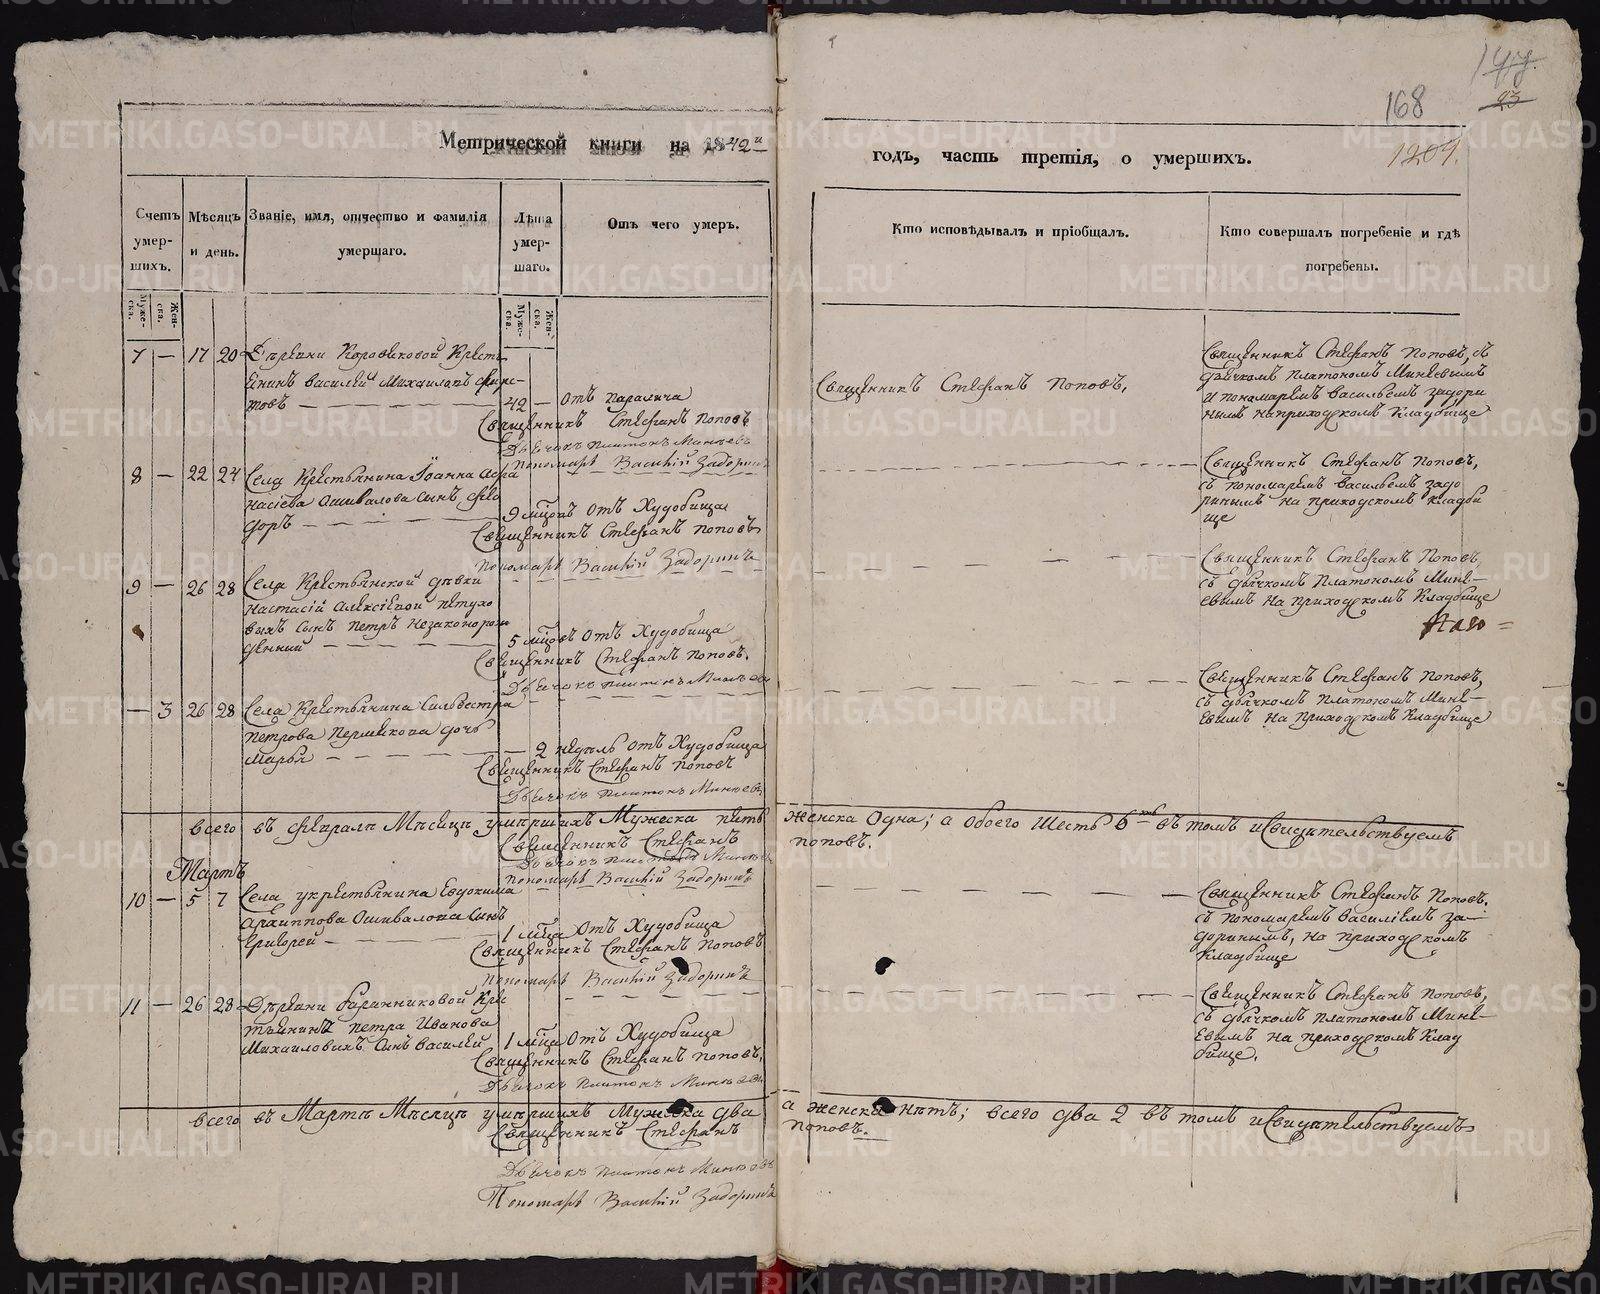 168
1209.
Метрической книги на 1842й
годъ, часть третія, о умершихъ.
Счетъ умер-шихъ.
Мѣсяцъ и день.
Званіе, имя, отчество и фамилія умершаго.
Лѣта умер-шаго.
Отъ чего умеръ.
Кто исповѣдывалъ и пріобщалъ.
Кто совершалъ погребеніе и гдѣ погребены.
Муже-ска.
Жен-ска.
Муже-ска.
Жен-ска.
7 — 17 20 Деревни Коровяковой Кресть
янинъ Василей Михаиловъ
товъ
42 — Отъ паралича
Священникъ Стефанъ Поповъ
Дьячокъ Платонъ Минѣевъ
Пономарь Василій Задоринъ
Священникъ Стефанъ Поповъ.
Священникъ Стефанъ Поповъ, съ
дьячкомъ Платономъ Минеевымъ
и пономаремъ Васильемъ Задори
нымъ на приходскомъ Кладбище
8 — 22 24 Села Крестьянина Іоанна Афа
насіева Ошивалова сынъ Фео
доръ
9 мцовъ Отъ Худобища
Священникъ Стефанъ Поповъ
Пономарь Василій Задоринъ
Священникъ Стефанъ Поповъ,
съ пономаремъ Васильемъ Задо
ринымъ на приходскомъ кладби
ще
9 — 26 28 Села Крестьянской дѣвки
Настасіи Алексіевой Петухо
выхъ сынъ Петръ незаконорож
денный
5 мцовъ Отъ Худобища
Священникъ Стефанъ Поповъ.
Дьячокъ Платонъ Минѣевъ
Священникъ Стефанъ Поповъ,
съ дьячкомъ Платономъ Мине-
евымъ на приходскомъ Кладбище
— 3 26 28 Села Крестьянина Сильвестра
Петрова Пермякова дочь
Марья
— 2 недѣль Отъ Худобища
Священникъ Стефанъ Поповъ
Дьячокъ Платонъ Минѣевъ
Священникъ Стефанъ Поповъ,
съ дьячкомъ Платономъ Мине-
евымъ на приходскомъ Кладбище
всего въ февралѣ Мѣсяцѣ умершихъ Мужеска пять женска Одна; а обоего Шесть 6 въ томъ и Свидѣтельствуемъ
Священникъ Стефанъ Поповъ.
Дьячокъ Платонъ Минѣевъ
Пономарь Василій Задоринъ
Мартъ
10 — 5 7 Села укрестьянина Евдокима
Архиппова Ошивалова Сынъ
Григорей
1 мца Отъ Худобища
Священникъ Стефанъ Поповъ
Пономарь Василій Задоринъ
Священникъ Стефанъ Поповъ.
съ пономаремъ Василіемъ За-
доринымъ, на приходскомъ
Кладбище
11 — 26 28 Деревни Баранниковой Крес
тьянинъ Петра Иванова
Михаиловыхъ Сынъ Василей
1 мца Отъ Худобища
Священникъ Стефанъ Поповъ.
Дьячокъ Платонъ Минѣевъ.
Священникъ Стефанъ Поповъ,
съ дьячкомъ Платономъ Мине-
евымъ на приходскомъ Клад
бище.
всего въ Мартѣ Мѣсяцѣ умершихъ Мужеска два а женска нѣтъ; всего два 2 въ томъ и Свидѣтельствуемъ
Священникъ Стефанъ Поповъ.
Дьячокъ Платонъ Минѣевъ
Пономарь Василій Задоринъ
METRIKI.GASO-URAL.RU